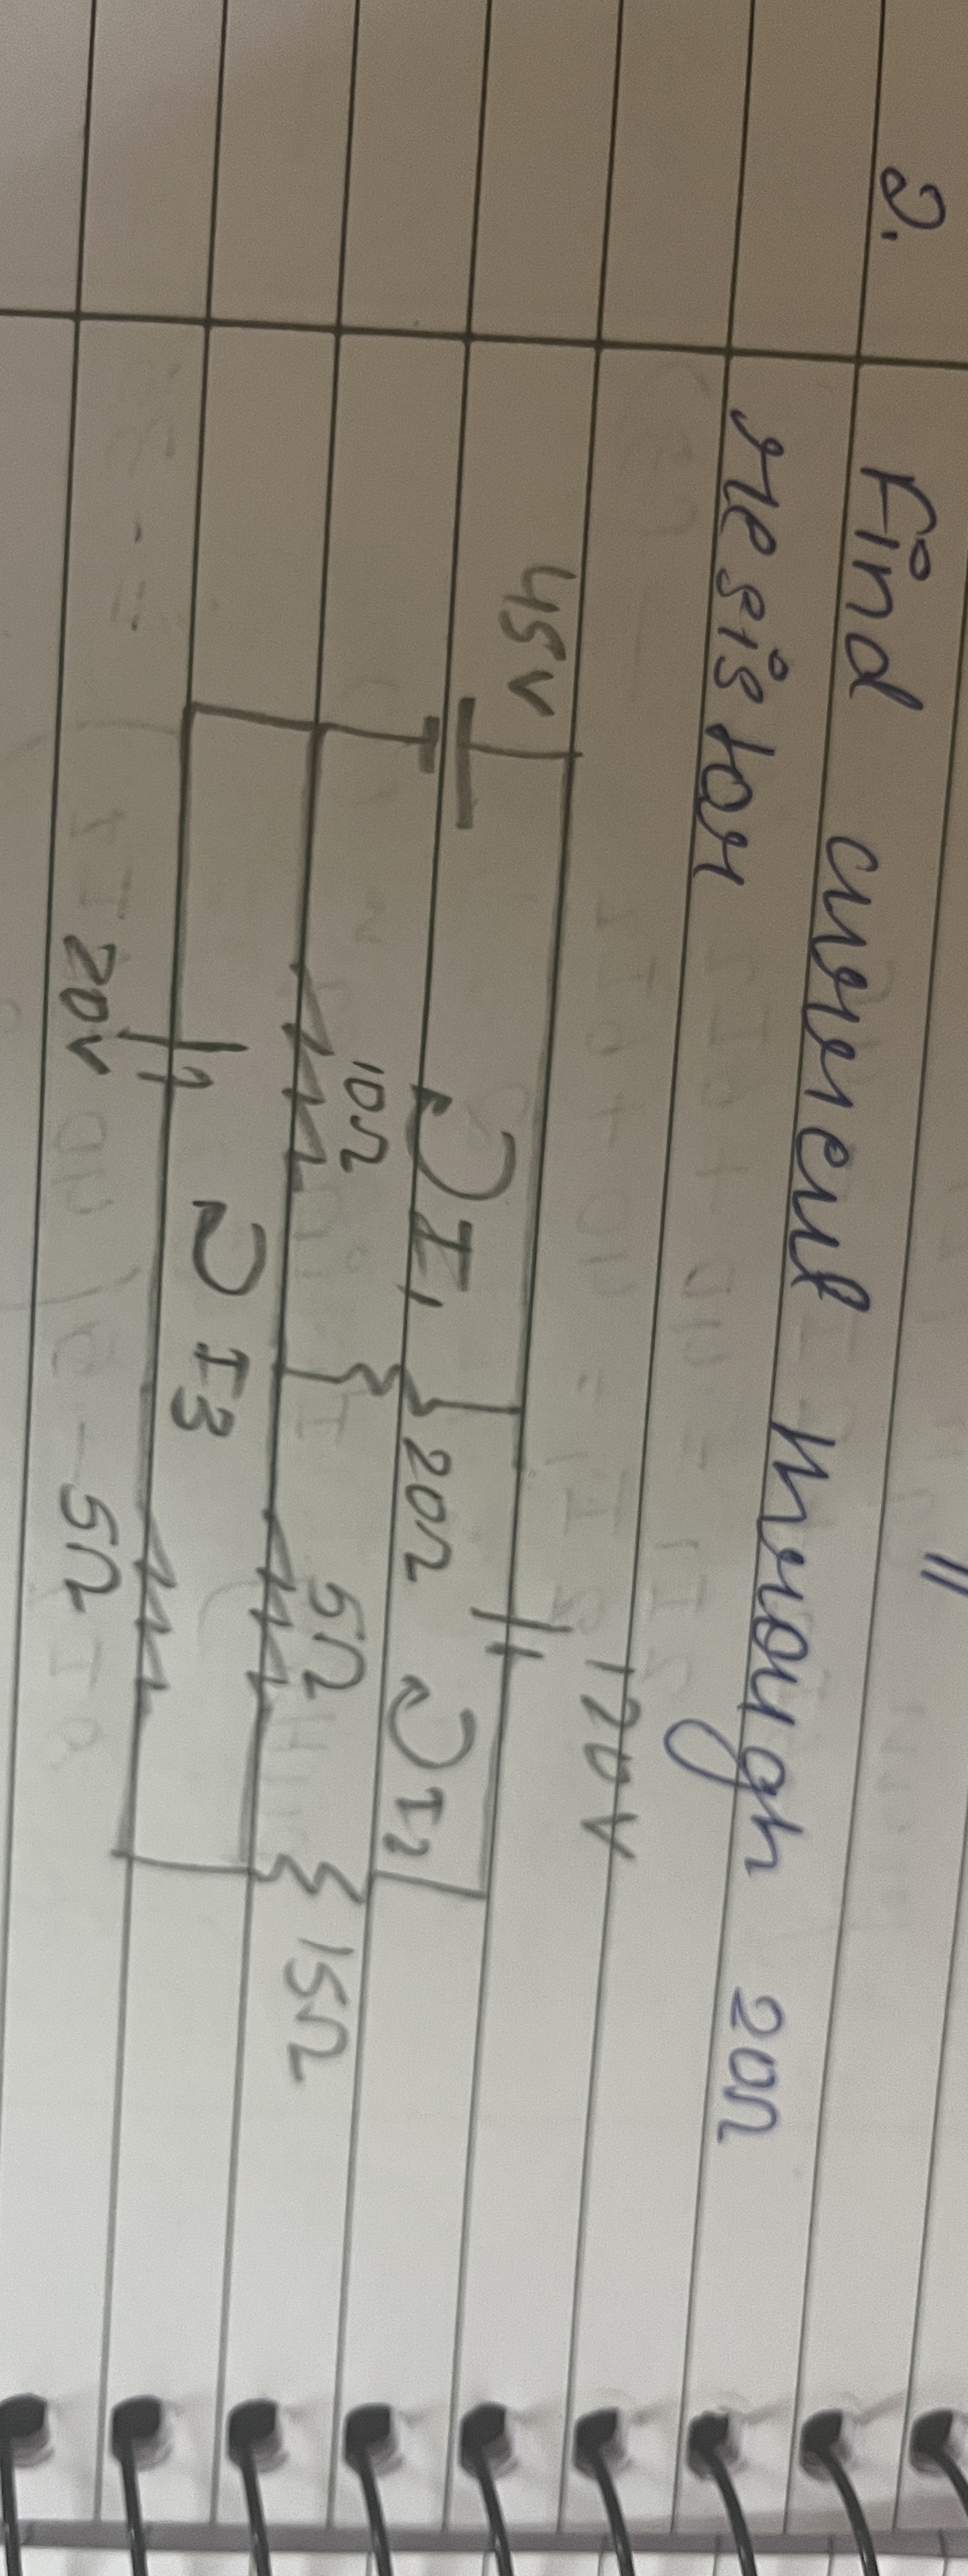 2. Find current through 20Ω
resistor
45V
120V
I1
20Ω
I2
10Ω
5Ω
15Ω
I3
20V
5Ω